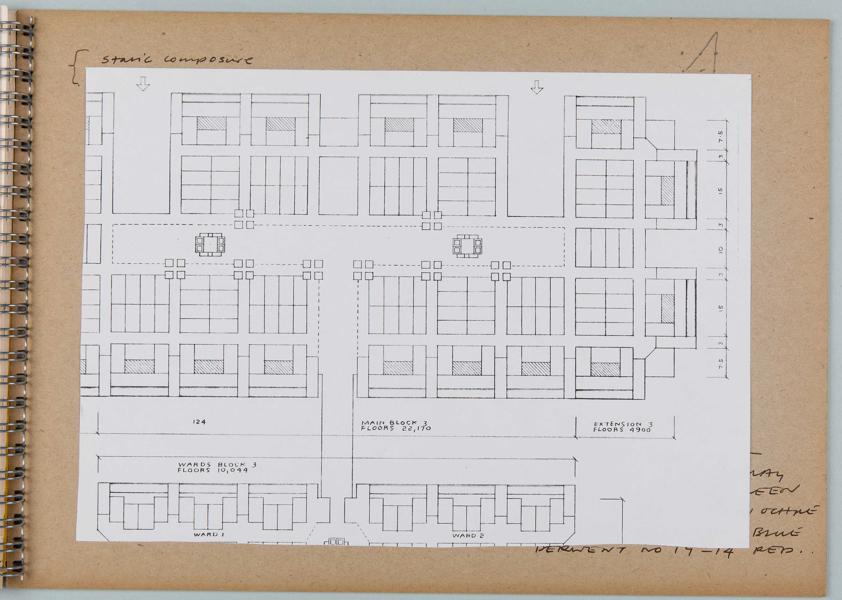 static composure
A
7·5
3
15
3
10
3
15
3
7·5
124
MAIN BLOCK 3
FLOORS 22,170
EXTENSION 3
FLOORS 4900
WARDS BLOCK 3
FLOORS 10,044
WARD 1
WARD 2
OCHRE
BLUE
DERWENT NO 19-14 RED..